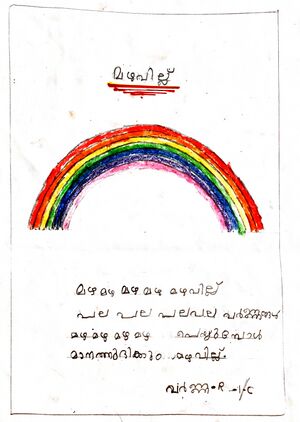 മഴവില്ല്
മഴ മഴ മഴ മഴ മഴവില്ല്
പല പല പലപല വർണ്ണങ്ങൾ
മഴ മഴ മഴ മഴ പെയ്യുമ്പോൾ
മാനത്തുദിക്കും മഴവില്ല്
വർണ്ണ R I-C